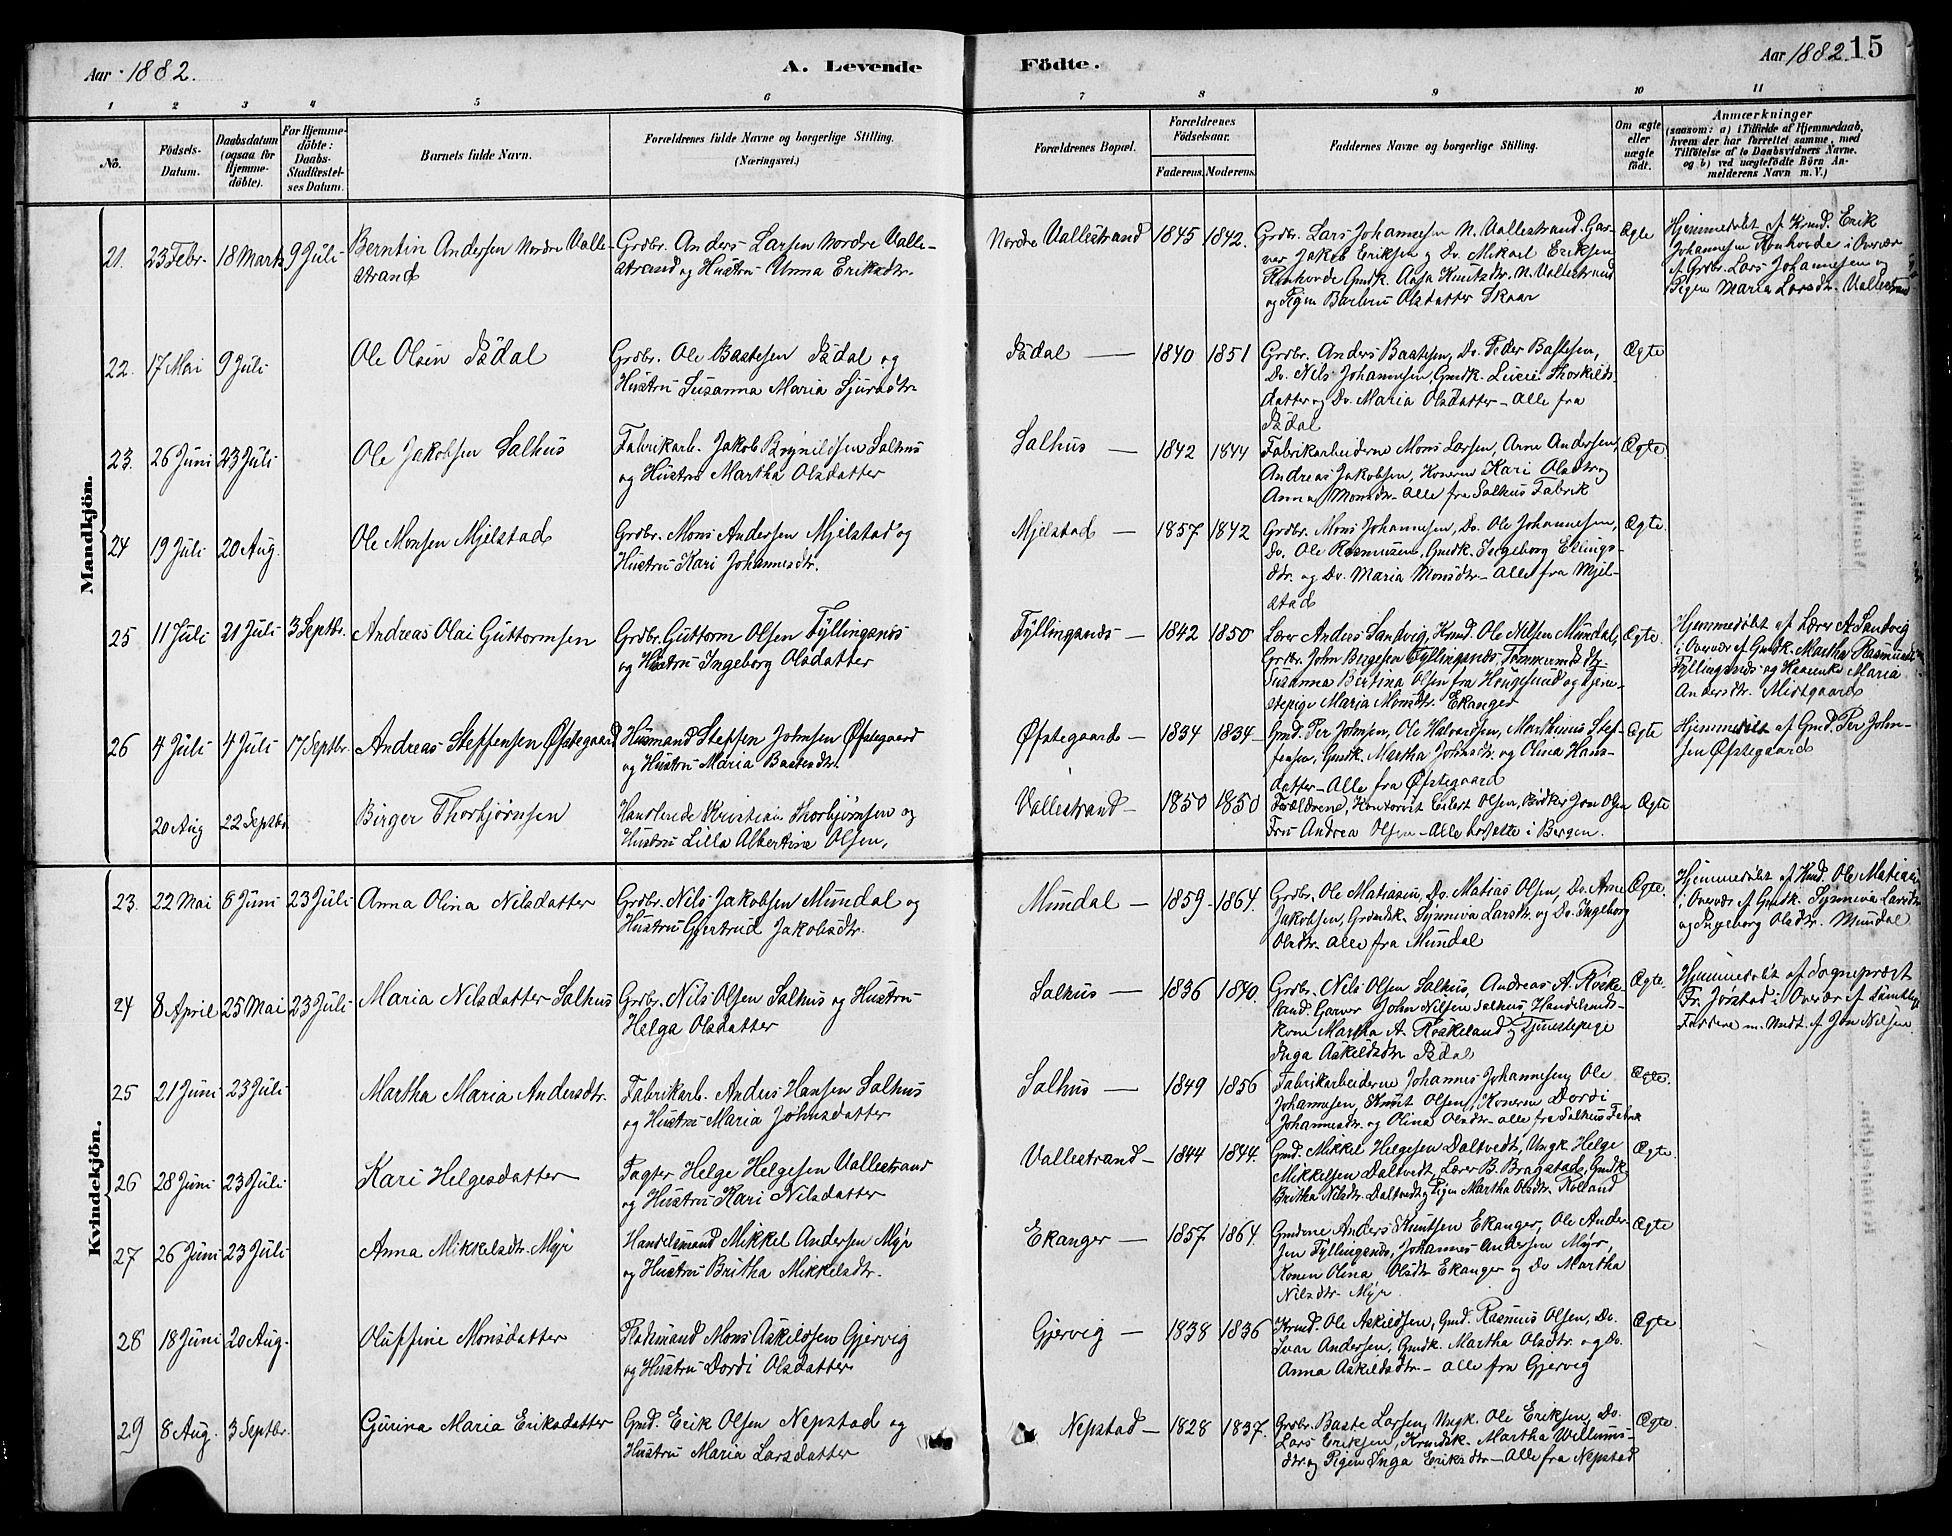 Aar 1882.
A. Levende Födte.
Aar 1882 15
1 2 3 4 5 6 7 8 9 10 11
No.
Födsels-Datum.
Daabsdatum (ogsaa for Hjemme-döbte).
For Hjemme-döbte: Daabs-Stadfæstel-ses Datum.
Barnets fulde Navn.
Forældrenes fulde Navne og borgerlige Stilling. (Næringsvei.)
Forældrenes Bopæl.
Forældrenes Födselsaar.
Faderens. Moderens.
Faddernes Navne og borgerlige Stilling.
Om ægte eller uægte födt.
Anmærkninger
(saasom: a) i Tilfælde af Hjemmedaab,
hvem der har forrettet samme, med
Tilföielse af to Daabsvidners Navne.
og b) ved uægtefödte Börn An-
melderens Navn m. V.)
Mandkjön.
21. 23 Febr. 18 Marts 9 Juli
Berntin Andersen Nordre Valle-
strand
Grdbr. Anders Larsen Nordre Valle-
strand og Hustru Unna Eriksdtr.
Nordre Vallestrand 1845 1842.
Grdbr. Lars Johannesen N. Vallestrand. Gar-
ver Jakob Eriksen og Do. Mikael Eriksen
Ronhovde Gmdk. Anja Knutsdtr. N. Vallestrand
og Pigen Barbru Olsdatter Skaar
Ægte
Hjemmedøbt af Kmd. Erik
Johannesen Ronhovde i Overvær
af Grdbr. Lars Johannesen og
Pigen Maria Larsdtr. Vallestrand
22. 17 Mai 9 Juli
Ole Olsen Isdal
Grdbr. Ole Bastesen Isdal og
Hustru Susanna Maria Sjursdtr.
Isdal — 1840 1851
Grdbr. Anders Bastesen, Do. Peder Bastesen,
Do. Nils Johannesen, Gmdk. Lucie Thorkilds-
datter og Do. Maria Olsdatter – alle fra
Isdal
Ægte
23. 26 Juni 23 Juli
Ole Jakobsen Salhus
Fabrikarb. Jakob Brynildsen Salhus
og Hustru Martha Olsdatter
Salhus — 1842 1844
Fabrikarbeiderne Mons Larsen, Arne Andersen,
Andreas Jakobsen, Konerne Kari Olsdtr. og
Anna Monsdtr. – alle fra Salhus Fabrik
Ægte.
24 19 Juli 20 Aug.
Ole Monsen Mjelstad
Grdbr. Mons Andersen Mjelstad og
Hustru Kari Johannesdtr.
Mjelstad — 1857 1842
Grdbr. Mons Johannesen, Do. Ole Johannesen,
Do. Ole Rasmusen, Gmdk. Ingeborg Ellings-
dtr. og Do. Maria Monsdtr. – Alle fra Mjel-
stad
Ægte.
25 11 Juli 21 Juli 3 Septbr.
Andreas Olai Guttormsen
Grdbr. Guttorm Olsen Fyllingsnes
og Hustru Ingeborg Olsdatter
Fyllingsnes — 1842 1850
Lærer Anders Sandvig, Kmd. Ole Nilsen Mundal,
Grdbr. John Birgesen Fyllingsnes, Tømkermds dtr.
Susanna Bertina Olsen fra Haugesund og Tjene-
stepige Maria Monsdtr. Ekanger
Ægte.
Hjemmedøbt af Lærer A. Sandvig
i Overvær af Gmdk. Martha Rasmusdtr.
Fyllingsnes og Maria
Andersdtr. Midtgaard
26 4 Juli 4 Juli 17 Septbr.
Andreas Steffensen Øfstegaard
Husmand Steffen Johnsen Øfstegaard
og Hustru Maria Bastesdtr.
Øfstegaard — 1834 1834
Gmd. Per Johnsen, Ole Halvorsen, Marthinus Stef-
fensen, Gmdk. Martha Johnsdtr. og Olina Hans-
datter – Alle fra Øfstegaard
Ægte
Hjemmedøbt af Gmd. Per John-
sen Øfstegaard
20 Aug 22 Septbr.
Birger Thorbjørnsen
Handlende Kristian Thorbjørnsen og
Hustru Lilla Albertine Olsen,
Vallestrand — 1850 1850
Forældrene, Kontorist Eilert Olsen, Jon Olsen
Fru Andrea Olsen – Alle bosatte i Bergen.
Ægte
Kvindekjön.
23. 22 Mai 8 Juni 23 Juli
Anna Olina Nilsdatter
Grdbr. Nils Jakobsen Mundal og
Hustru Gjertrud Jakobsdtr.
Mundal — 1859 1864.
Grdbr. Ole Matiasen, Do. Matias Olsen, Do. Arne
Jakobsen, Grdmdsk. Synneva Larsdtr. og Do. Ingeborg
Olsdtr. alle fra Mundal
Ægte.
Hjemmedøbt af Kmd. Ole Matiasen
i Overvær af Gmdk. Synneva Larsdtr.
og Ingeborg Olsdtr. Mundal
24 8 April 25 Mai 23 Juli
Maria Nilsdatter Salhus
Grdbr. Nils Olsen Salhus og Hustru
Helga Olsdatter
Salhus — 1836 1840.
Grdbr. Nils Olsen Salhus, Andreas A. Roske-
land. Garver John Nilsen Salhus Handelsmds-
kone Martha A. Roskeland og Tjenestepige
Inga Askildsdtr. Isdal
Ægte
Hjemmedøbt af Sogneprest
Fr. Jørstad i Overvær af samtlige
Faddere m. Undt. af Jon Nilsen
25 21 Juni 23 Juli
Martha Maria Andersdtr.
Fabrikarb. Anders Hansen Salhus
og Hustru Maria Johnsdatter
Salhus — 1849 1856
Fabrikarbeiderne Johannes Johannesen, Ole
Johannesen, Knut Olsen, Konerne Dordi
Johannesdtr. og Olina Olsdtr. – alle fra Salhus Fabrik
Ægte.
26 28 Juni 23 Juli
Kari Helgesdatter
Fagter Helge Helgesen Vallestrand
og Hustru Kari Nilsdatter
Vallestrand — 1844 1844.
Gmd. Mikkel Helgesen Daltvedt, Ungk. Helge
Mikkelsen Daltvedt, Lærer B. Bragstad, Gmdk.
Britha Nilsdtr. Daltvedt og Pigen Martha Olsdtr. Rolland
Ægte.
27 26 Juni 23 Juli
Anna Mikkelsdtr. Myr
Handelsmand Mikkel Andersen Myr
og Hustru Britha Mikkelsdtr.
Ekanger — 1857 1864.
Gmdene Anders Knutsen Ekanger, Ole Ander-
sen Fyllingsnes, Johannes Andersen Myr,
Konen Olina Olsdtr. Ekanger og Do. Martha
Nilsdtr. Myr.
Ægte
28 18 Juni 20 Aug.
Oluffine Monsdatter
Pladsmand Mons Askildsen Gjervig
og Hustru Dordi Olsdatter
Gjervig — 1838 1836
Kmd. Ole Askildsen, Gmd. Rasmus Olsen, Do.
Ivar Andersen, Gmdk. Martha Olsdtr. og Do.
Anna Askildsdtr. – alle fra Gjervig
Ægte
29 8 Aug. 3 Septbr.
Gurina Maria Eriksdatter
Gmd. Erik Olsen Nepstad og
Hustru Maria Larsdatter
Nepstad — 1828 1837.
Grdbr. Baste Larsen, Ungk. Ole Eriksen, Do.
Lars Eriksen, Kmdsk. Martha Willums-
dtr. og Pigen Inga Eriksdtr. – Alle fra Nepstad
Ægte.